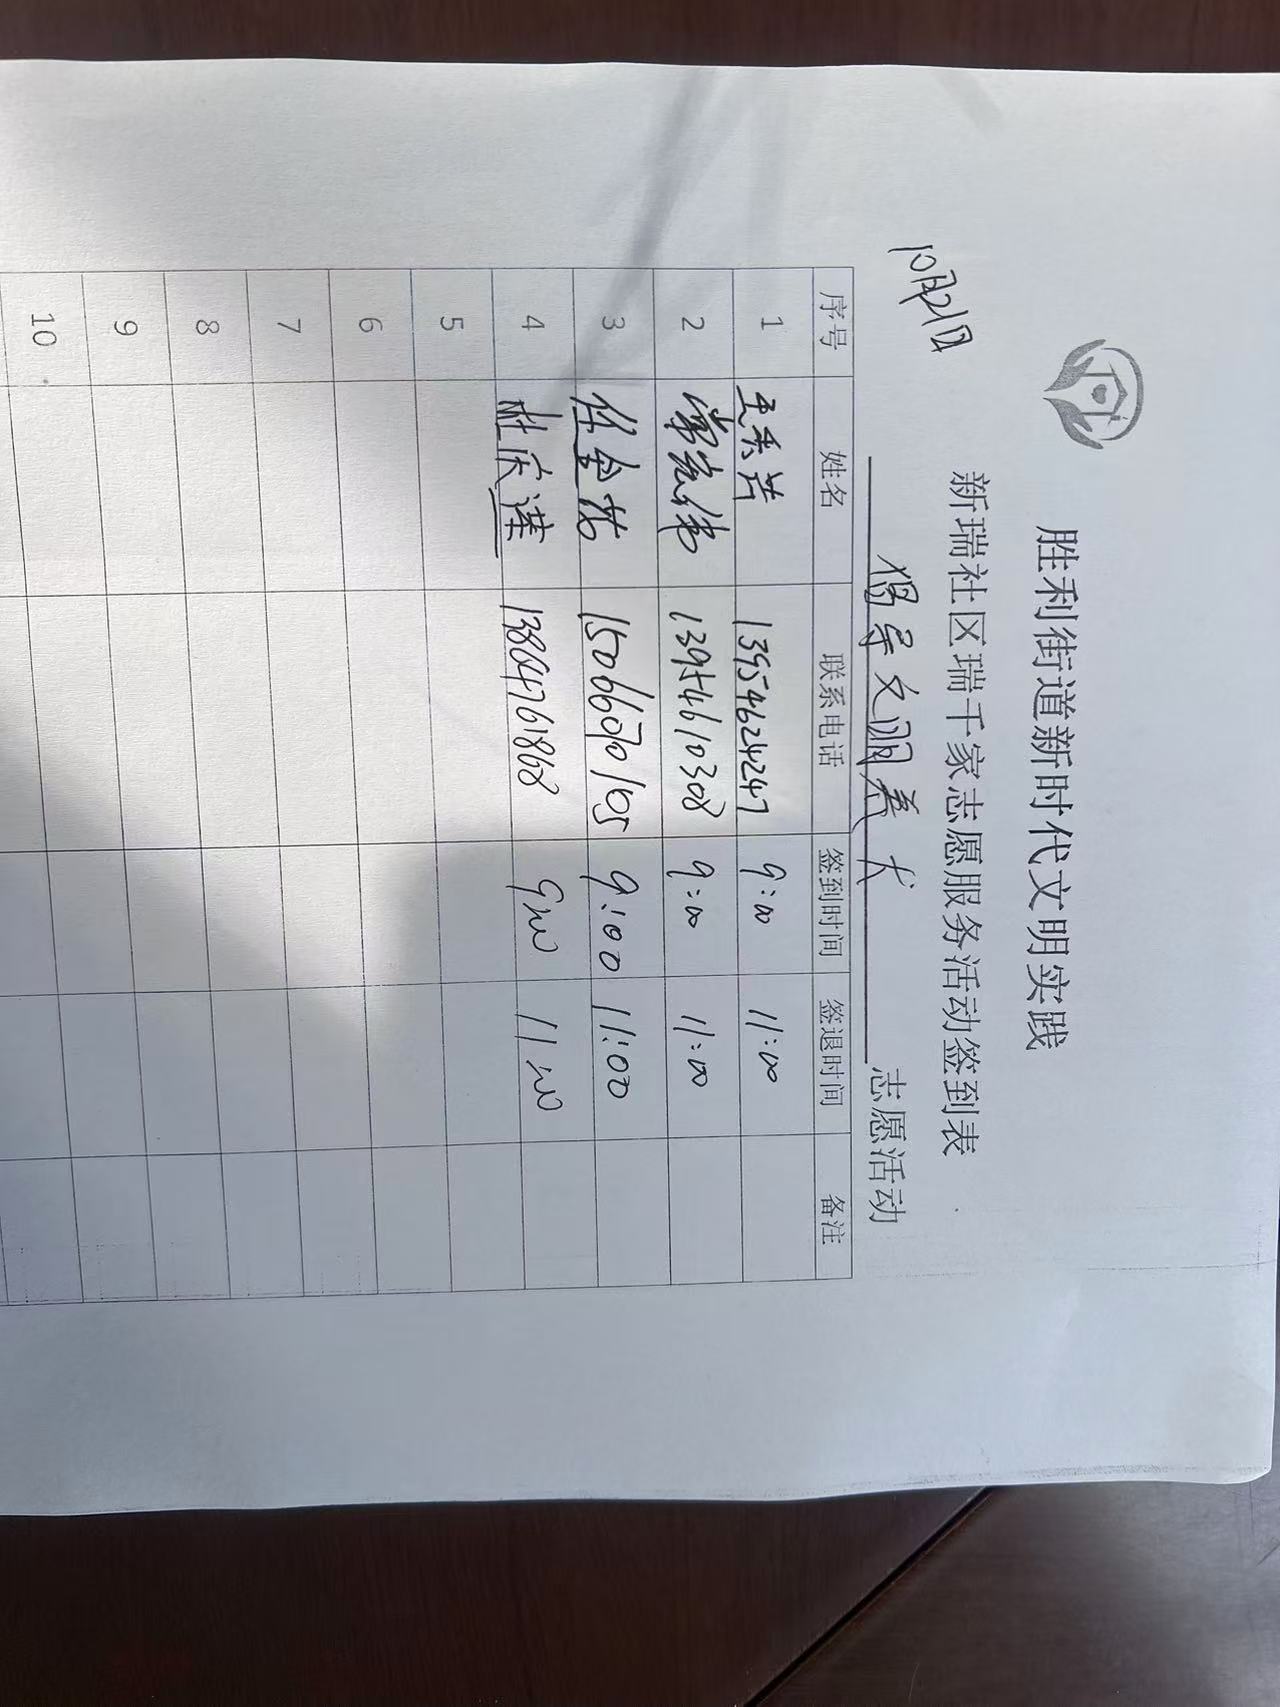 胜利街道新时代文明实践
新瑞社区瑞千家志愿服务活动签到表
10月21日 倡导文明养犬 志愿活动
序号 姓名 联系电话 签到时间 签退时间 备注
1 王秀芳 13954624247 9:00 11:00
2 常宏伟 13954610308 9:00 11:00
3 任金花 15066070105 9:00 11:00
4 杜庆莲 13864761868 9:00 11:00
5
6
7
8
9
10